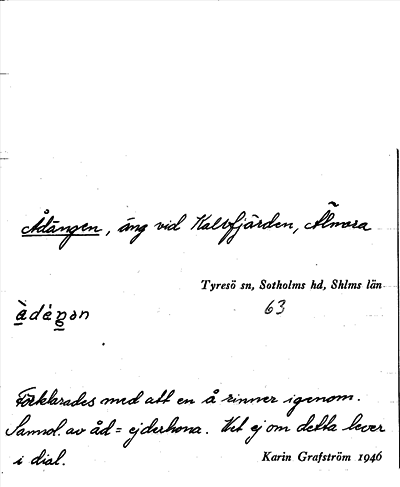 Ådängen, äng vid Kalvfjärden, Älmora
Tyresö sn, Sotholms hd, Shlms län
63
Förklarades med att en å rinner igenom.
Sannol. av åd = ejderhona. Vet ej om detta lever
i dial.
Karin Grafström 1946